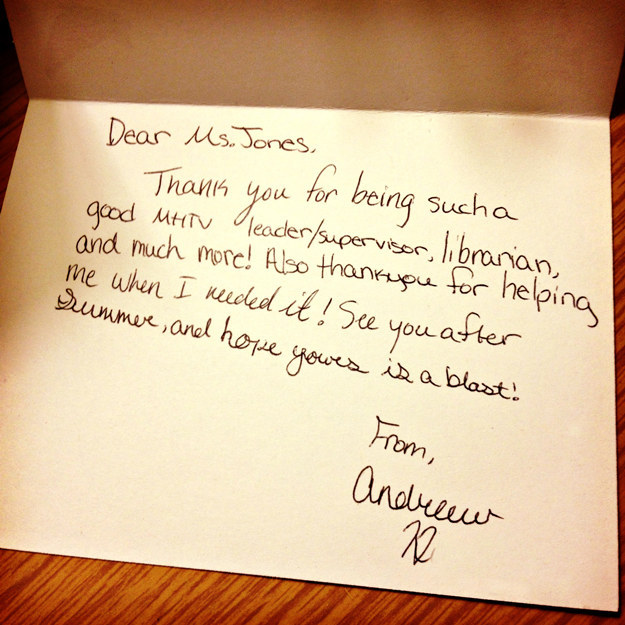 Dear Ms. Jones,
Thank you for being such a
good MHTV leader/supervisor, librarian,
and much more! Also thankyou for helping
me when I needed it! See you after
Summer, and hope yours is a blast!
From,
Andrew